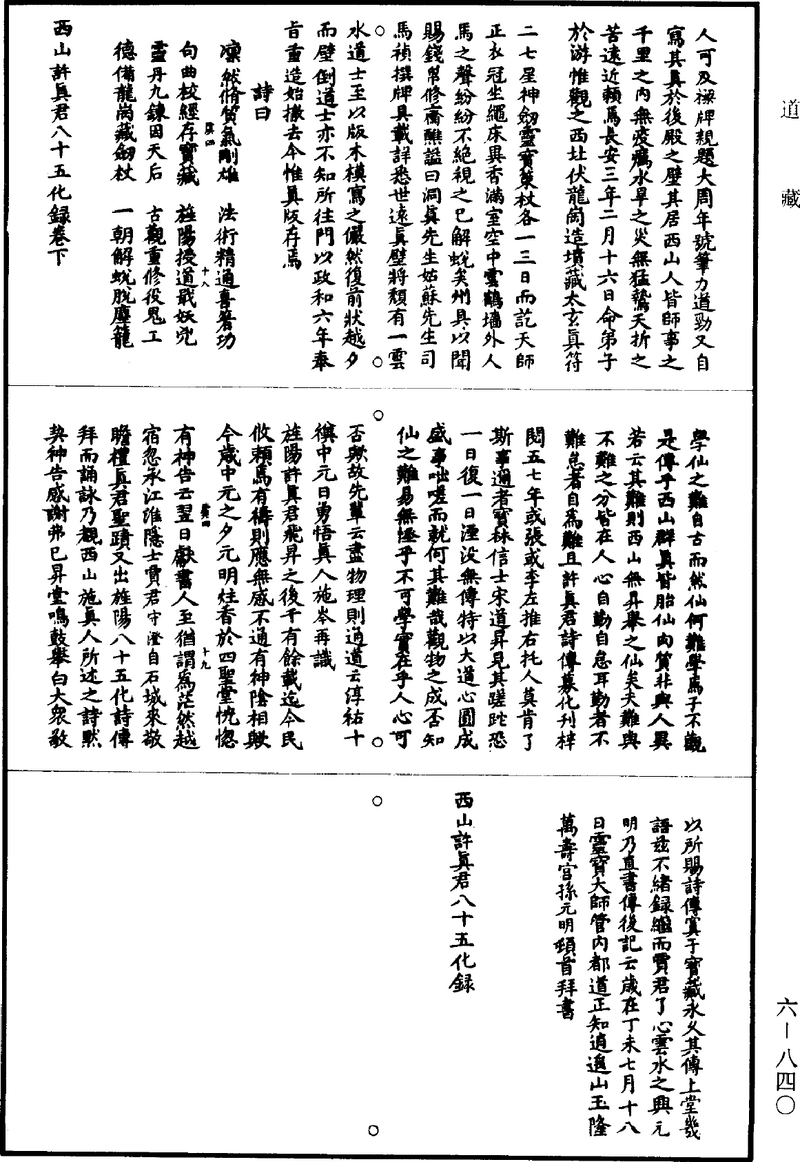 道藏
人可及禄牌親題大周年號筆力遒勁又自
寫其真於後殿之壁其居西山人皆師事之
千里之内無疫癘水旱之災無猛鷙夭折之
苦遠近賴焉長安三年二月十六日命弟子
於游帷觀之西址伏龍崗造墳藏太玄真符
二七星神劒靈寶策杖各一三日而訖天師
正衣冠坐繩床異香滿室空中雲鶴墻外人
馬之聲紛紛不絕視之已解蛻矣州具以聞
賜錢帛修齋醮謚曰洞真先生姑蘇先生司
馬禎撰牌具載詳悉世遠真壁將頹有一雲
水道士至以版木模寫之儼然復前狀越夕
而壁倒道士亦不知所往門以政和六年奉
旨重造始撤去今惟真版存焉
詩曰
凜然脩質氣剛雄 法術精通喜筭功
句曲校經存寶藏 旌陽授道戢妖兇
靈丹九鍊因天后 古觀重修役鬼工
德備龍崗藏劒杖 一朝解蛻脫塵籠
西山許真君八十五化録卷下
學仙之難自古而然仙何難學焉子不觀
是傳乎西山群真皆胎仙肉質非與人異
若云其難則西山無昇舉之仙矣夫難與
不難之分皆在人心自勤自怠耳勤者不
難怠者自為難且許真君詩傳募化刋梓
閲五七年或張或李左推右托人莫肯了
斯事邇者寶林信士宋道昇見其蹉跎恐
一日復一日湮没無傳特以大道心圓成
盛事咄嗟而就何其難哉觀物之成否知
仙之難易無怪乎不可學實在乎人心可
否歟故先輩云盡物理則通道云淳祐十
禩中元日勇悟真人施岑再識
旌陽許真君飛昇之後千有餘載迄今民
攸賴焉有禱則應無感不通有神陰相歟
今歲中元之夕元明炷香於四聖堂恍惚
有神告云翌日獻書人至猶謂為茫然越
宿忽承江淮隱士賈君守澄自石城來敬
瞻禮真君聖蹟又出旌陽八十五化詩傳
拜而誦詠乃觀西山施真人所述之詩黙
契神告感謝弗已昇堂鳴鼓舉白大衆敬
以所賜詩傳寘于寶藏永久其傳上堂幾
語兹不緒録繼而賈君了心雲水之興元
明乃直書傳後記云歲在丁未七月十八
日靈寶大師管内都道正知逍遥山玉隆
萬壽宫孫元明頓首拜書
西山許真君八十五化録
六—八四〇